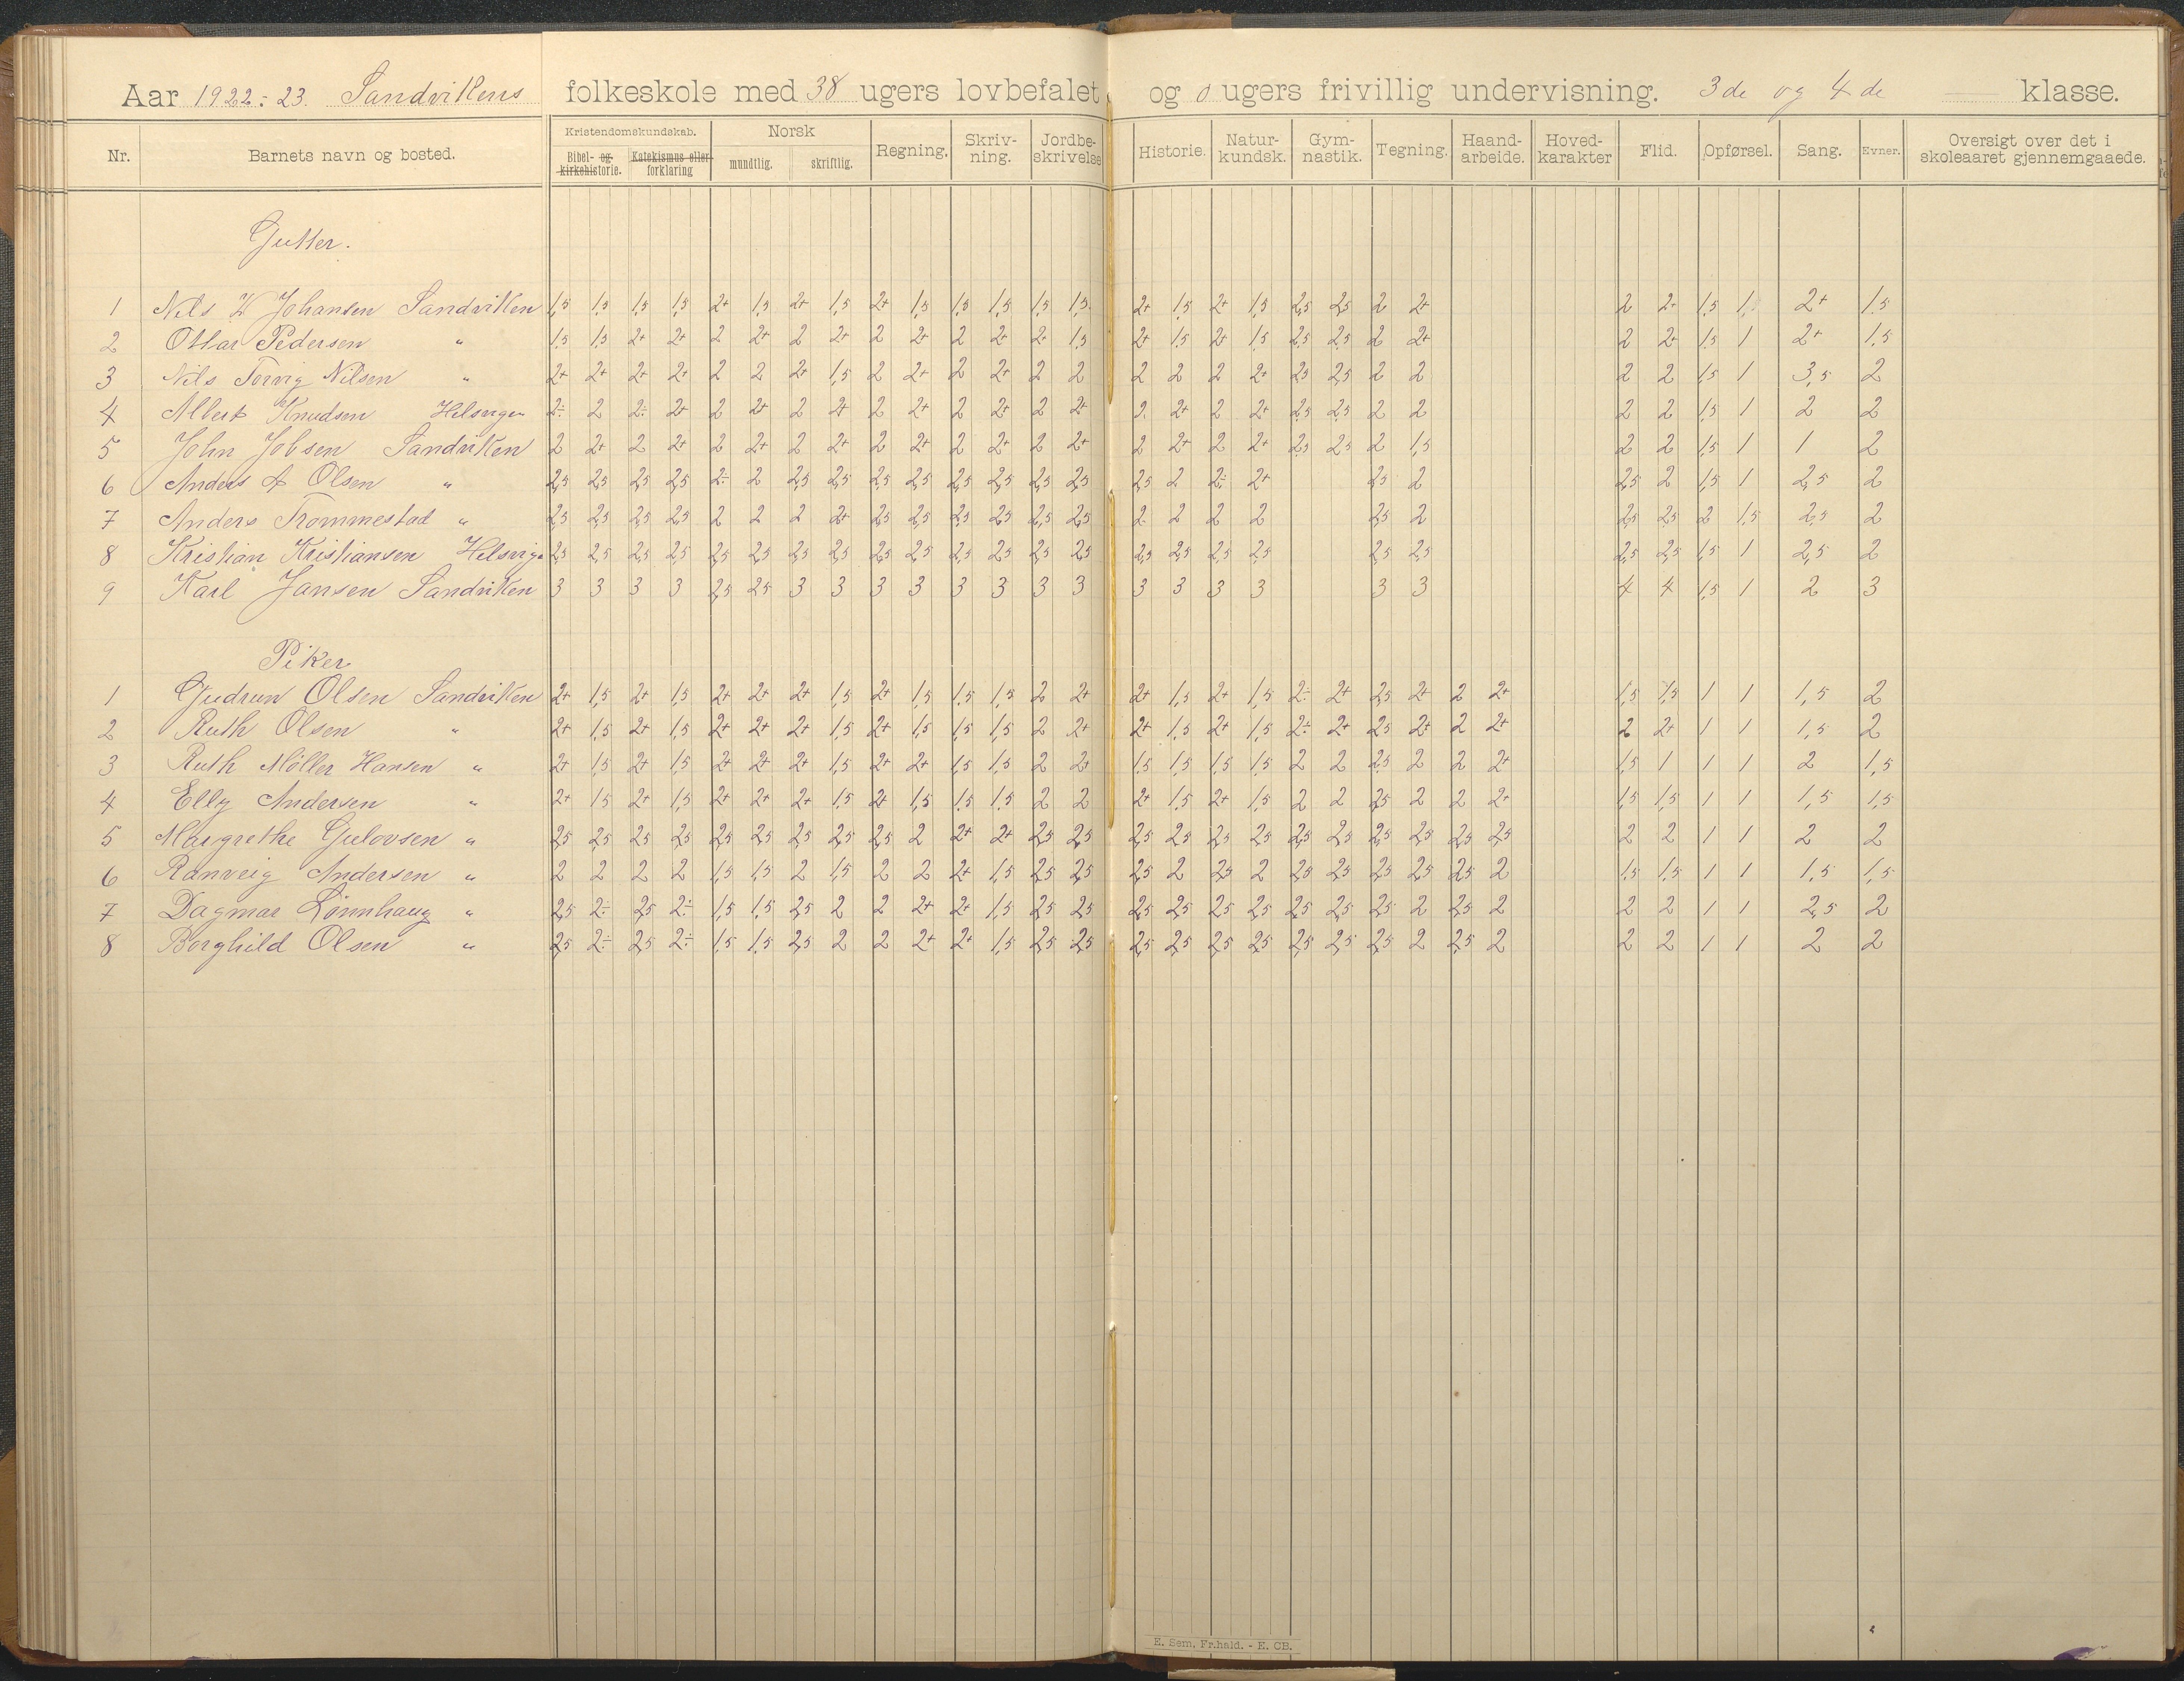 Aar 1922-23. Sandvikens folkeskole med 38 ugers lovbefalet og 0 ugers frivillig undervisning. 3de og 4de klasse.
Nr. Barnets navn og bosted. Kristendomskundskab. Bibel- og kirkehistorie. Katekismus eller forklaring Norsk mundtlig. skriftlig. Regning. Skriv-ning. Jordbe-skrivelse Historie. Natur-kundsk. Gym-nastik. Tegning. Haand-arbeide. Hoved-karakter Flid. Opførsel. Sang. Evner. Oversigt over det i skoleaaret gjennemgaaede.
Gutter.
1 Nils Johansen Sandviken 1,5 1,5 1,5 1,5 2+ 1,5 2+ 1,5 2+ 1,5 1,5 1,5 1,5 1,5 2+ 1,5 2+ 1,5 2,5 2,5 2 2+ 2 2+ 1,5 1 2+ 1,5
2 Ottar Pedersen " 1,5 1,5 2+ 2+ 2 2+ 2 2+ 2 2+ 2 2+ 2+ 1,5 2+ 1,5 2+ 1,5 2,5 2,5 2 2+ 2 2+ 1,5 1 2+ 1,5
3 Nils Torvig Nilsen " 2+ 2+ 2+ 2+ 2 2 2+ 1,5 2 2+ 2 2+ 2 2 2 2 2 2+ 2,5 2,5 2 2 2 2 1,5 1 3,5 2
4 Albert Knudsen Helsvigen 2÷ 2 2÷ 2+ 2 2+ 2 2+ 2 2+ 2 2+ 2 2+ 2 2+ 2 2+ 2,5 2,5 2 2 2 2 1,5 1 2 2
5 John Jobsen Sandviken 2 2+ 2 2+ 2 2+ 2 2+ 2 2+ 2 2+ 2 2+ 2 2+ 2 2+ 2,5 2,5 2 1,5 2 2 1,5 1 1 2
6 Anders A Olsen " 2,5 2,5 2,5 2,5 2÷ 2 2,5 2,5 2,5 2,5 2,5 2,5 2,5 2,5 2,5 2 2÷ 2+ 2,5 2 2,5 2 1,5 1 2,5 2
7 Anders Trommestad " 2,5 2,5 2,5 2,5 2 2 2 2+ 2,5 2,5 2,5 2,5 2,5 2,5 2 2 2 2 2,5 2 2,5 2,5 2 1,5 2,5 2
8 Kristian Kristiansen Helsvig 2,5 2,5 2,5 2,5 2,5 2,5 2,5 2,5 2,5 2,5 2,5 2,5 2,5 2,5 2,5 2,5 2,5 2,5 2,5 2,5 2,5 2,5 1,5 1 2,5 2
9 Karl Jansen Sandviken 3 3 3 3 2,5 2,5 3 3 3 3 3 3 3 3 3 3 3 3 3 3 4 4 1,5 1 2 3
Piker
1 Gudrun Olsen Sandviken 2+ 1,5 2+ 1,5 2+ 2+ 2+ 1,5 2+ 1,5 1,5 1,5 2 2+ 2+ 1,5 2+ 1,5 2÷ 2+ 2,5 2+ 2 2+ 1,5 1,5 1 1 1,5 2
2 Ruth Olsen " 2+ 1,5 2+ 1,5 2+ 2+ 2+ 1,5 2+ 1,5 1,5 1,5 2 2+ 2+ 1,5 2+ 1,5 2÷ 2+ 2,5 2+ 2 2+ 2 2+ 1 1 1,5 2
3 Ruth Møller Hansen " 2+ 1,5 2+ 1,5 2+ 2+ 2+ 1,5 2+ 2+ 1,5 1,5 2 2+ 1,5 1,5 1,5 1,5 2 2 2,5 2 2 2+ 1,5 1 1 1 2 1,5
4 Elly Andersen " 2+ 1,5 2+ 1,5 2+ 2+ 2+ 1,5 2+ 1,5 1,5 1,5 2 2 2+ 1,5 2+ 1,5 2 2 2,5 2 2 2+ 1,5 1,5 1 1 1,5 1,5
5 Margrethe Gulovsen " 2,5 2,5 2,5 2,5 2,5 2,5 2,5 2,5 2,5 2 2+ 2+ 2,5 2,5 2,5 2,5 2,5 2,5 2,5 2,5 2,5 2,5 2,5 2,5 2 2 1 1 2 2
6 Ranveig Andersen " 2 2 2 2 1,5 1,5 2 1,5 2 2 2+ 1,5 2,5 2,5 2,5 2 2,5 2 2,5 2,5 2,5 2,5 2,5 2 1,5 1,5 1 1 1,5 1,5
7 Dagmar Lønnhaug " 2,5 2÷ 2,5 2÷ 1,5 1,5 2,5 2 2 2+ 2+ 1,5 2,5 2,5 2,5 2,5 2,5 2,5 2,5 2,5 2,5 2 2,5 2 2 2 1 1 2,5 2
8 Borghild Olsen " 2,5 2÷ 2,5 2÷ 1,5 1,5 2,5 2 2 2+ 2+ 1,5 2,5 2,5 2,5 2,5 2,5 2,5 2,5 2,5 2,5 2 2,5 2 2 2 1 1 2 2
E. Sem, Fr.hald. - E. CB.